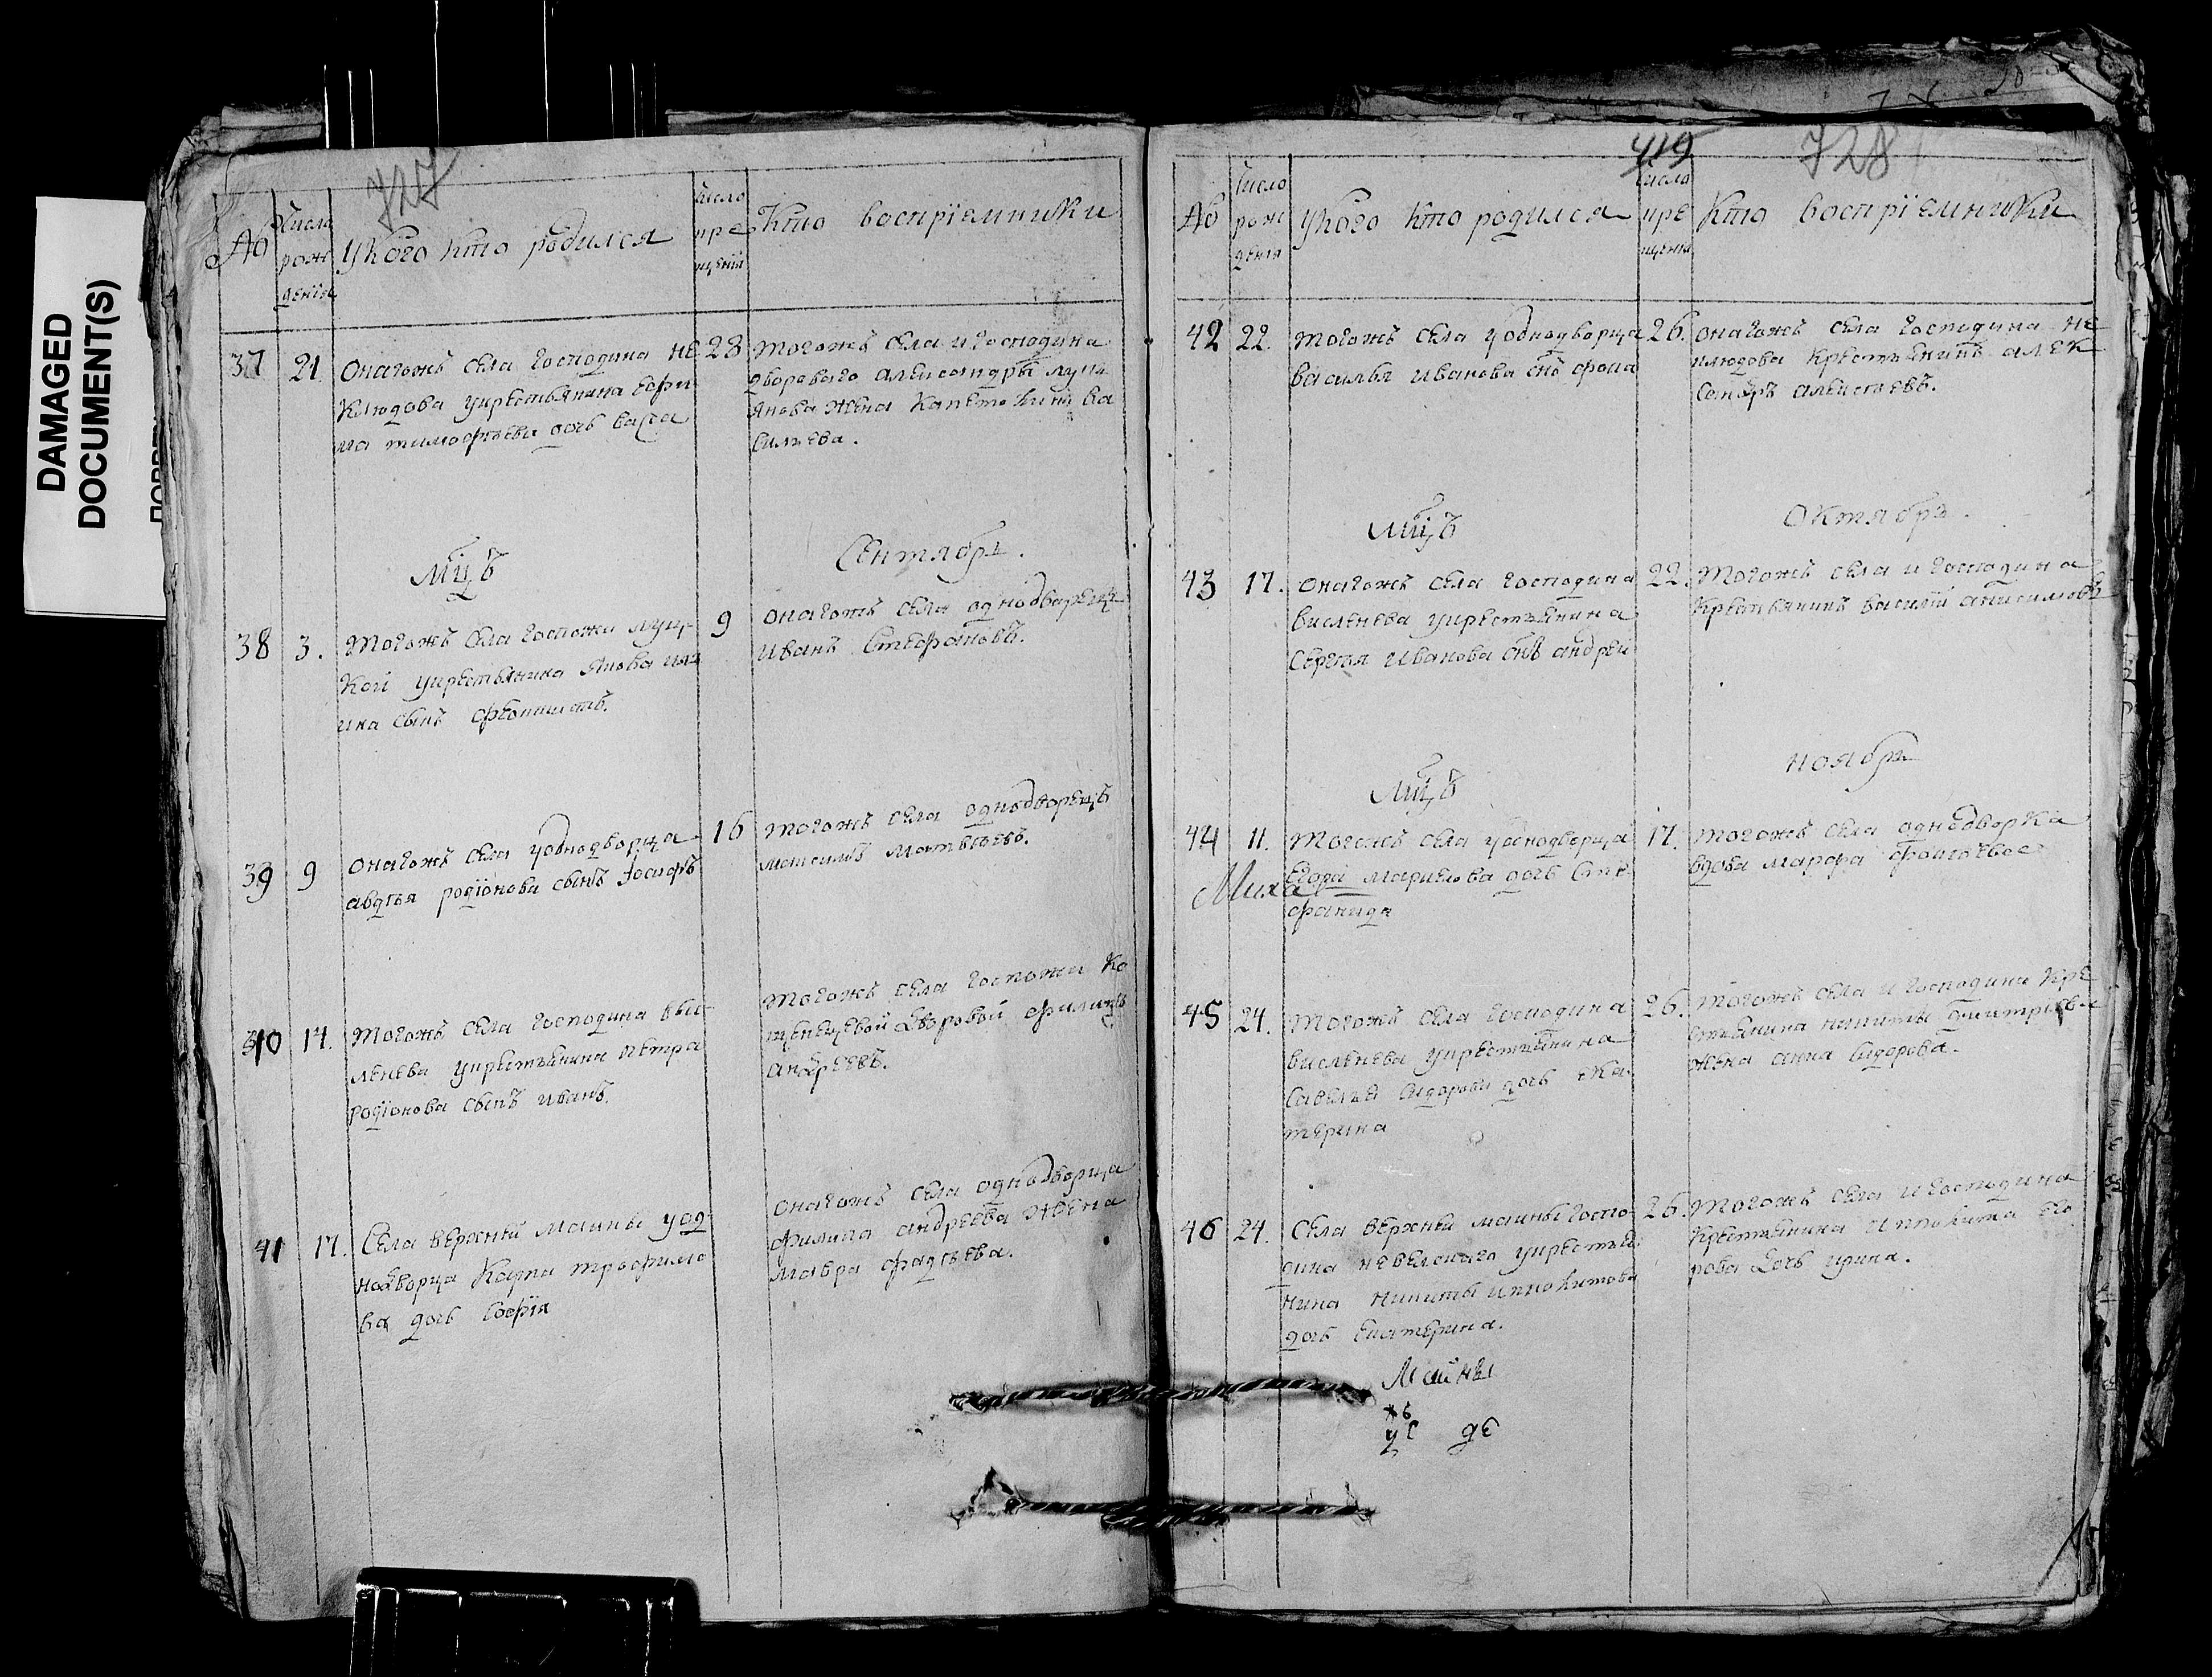 DAMAGED
DOCUMENT(S)
727
№
Число
рож
денїя
У кого кто родился
число
кре
щенїя
Кто воспрїемники
37
21.
Онагожъ села господина не
клюдова укрестьянина Ефи
ма тимофѣева дочь васса
28
тогожъ села и господина
двороваго александры лукь
янова жена Капетолина ва
сильева.
Мцъ
Сентябрь.
38
3.
Тогожъ села госпожи
кой укрестьянина Якова
ина сынъ
9
онагожъ села однодворецъ
Иванъ Стефановъ.
39
9
Онагожъ села уоднодворца
авдѣя родїонова сынъ Іосифъ
16
тогожъ села однодворецъ
матвѣевъ.
40
14.
Тогожъ села господина выс
ленева укрестьянина петра
родїонова сынъ иванъ.
тогожъ села госпожи ко
дворовой филипъ
андреевъ.
41
17.
Села верхней маины уод
нодворца Карпа трофимо
ва дочь Софїя
онагожъ села однодворца
филипа андреева жена
мавра фадѣева.
419
728
№
Число
рож
денїя
у кого кто родился
число
кре
щенїя
Кто воспрїемники
42
22.
тогожъ села уоднодворца
василья иванова снъ фома
26.
онагожъ села господина не
клюдова крестьянинъ алек
сандръ алексеевъ.
Мцъ
Октябрь.
43
17.
онагожъ села господина
висленева укрестьянина
Сергѣя Иванова снъ андрей
22.
тогожъ села и господина
крестьянинъ василїй анисимовъ
Мцъ
ноябрь
44
11.
тогожъ села уоднодворца
Егора маркелова дочь Сте
фанида
Миха
17.
тогожъ села однодворка
вдова марфа
45
24.
Тогожъ села господина
висленева укрестьянина
Савелья Сидорова дочь ека
терина
26.
тогожъ села и господина кре
стьянина никиты дмитрїева
жена анна Сидорова.
46
24.
Села верхней маины госпо
дина невелскаго укрестья
нина никиты ипполитова
дочь Екатерина.
26.
тогожъ села и господина
крестьянина ипполита его
рова дочь ирина.
Маины
де